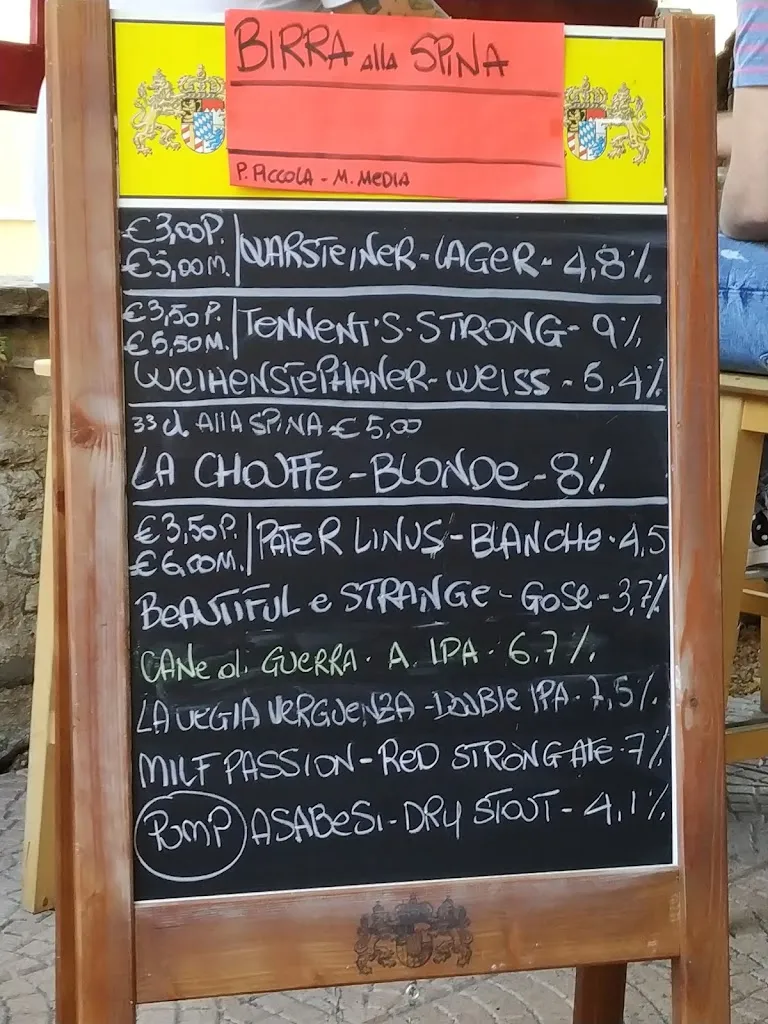 BIRRA alla SPINA
P. PICCOLA - M. MEDIA
€3,00P.
€5,00M.
WARSTEINER - LAGER - 4,8%
€3,50P.
€5,50M.
TENNENT'S - STRONG - 9%
WEIHENSTEPHANER - WEISS - 5,4%
33 cl AllA SPINA € 5,00
LA CHOUFFE - BLONDE - 8%
€3,50P.
€6,00M.
PATER LINUS - BLANCHE - 4,5
BEAUTIFUL e STRANGE - GOSE - 3,7%
CANE di GUERRA - A. IPA - 6,7%
LA VEGIA VERGUENZA - DOUBLE IPA - 7,5%
MILF PASSION - RED STRONG Ale - 7%
PUMP ASABESI - DRY STOUT - 4,1%